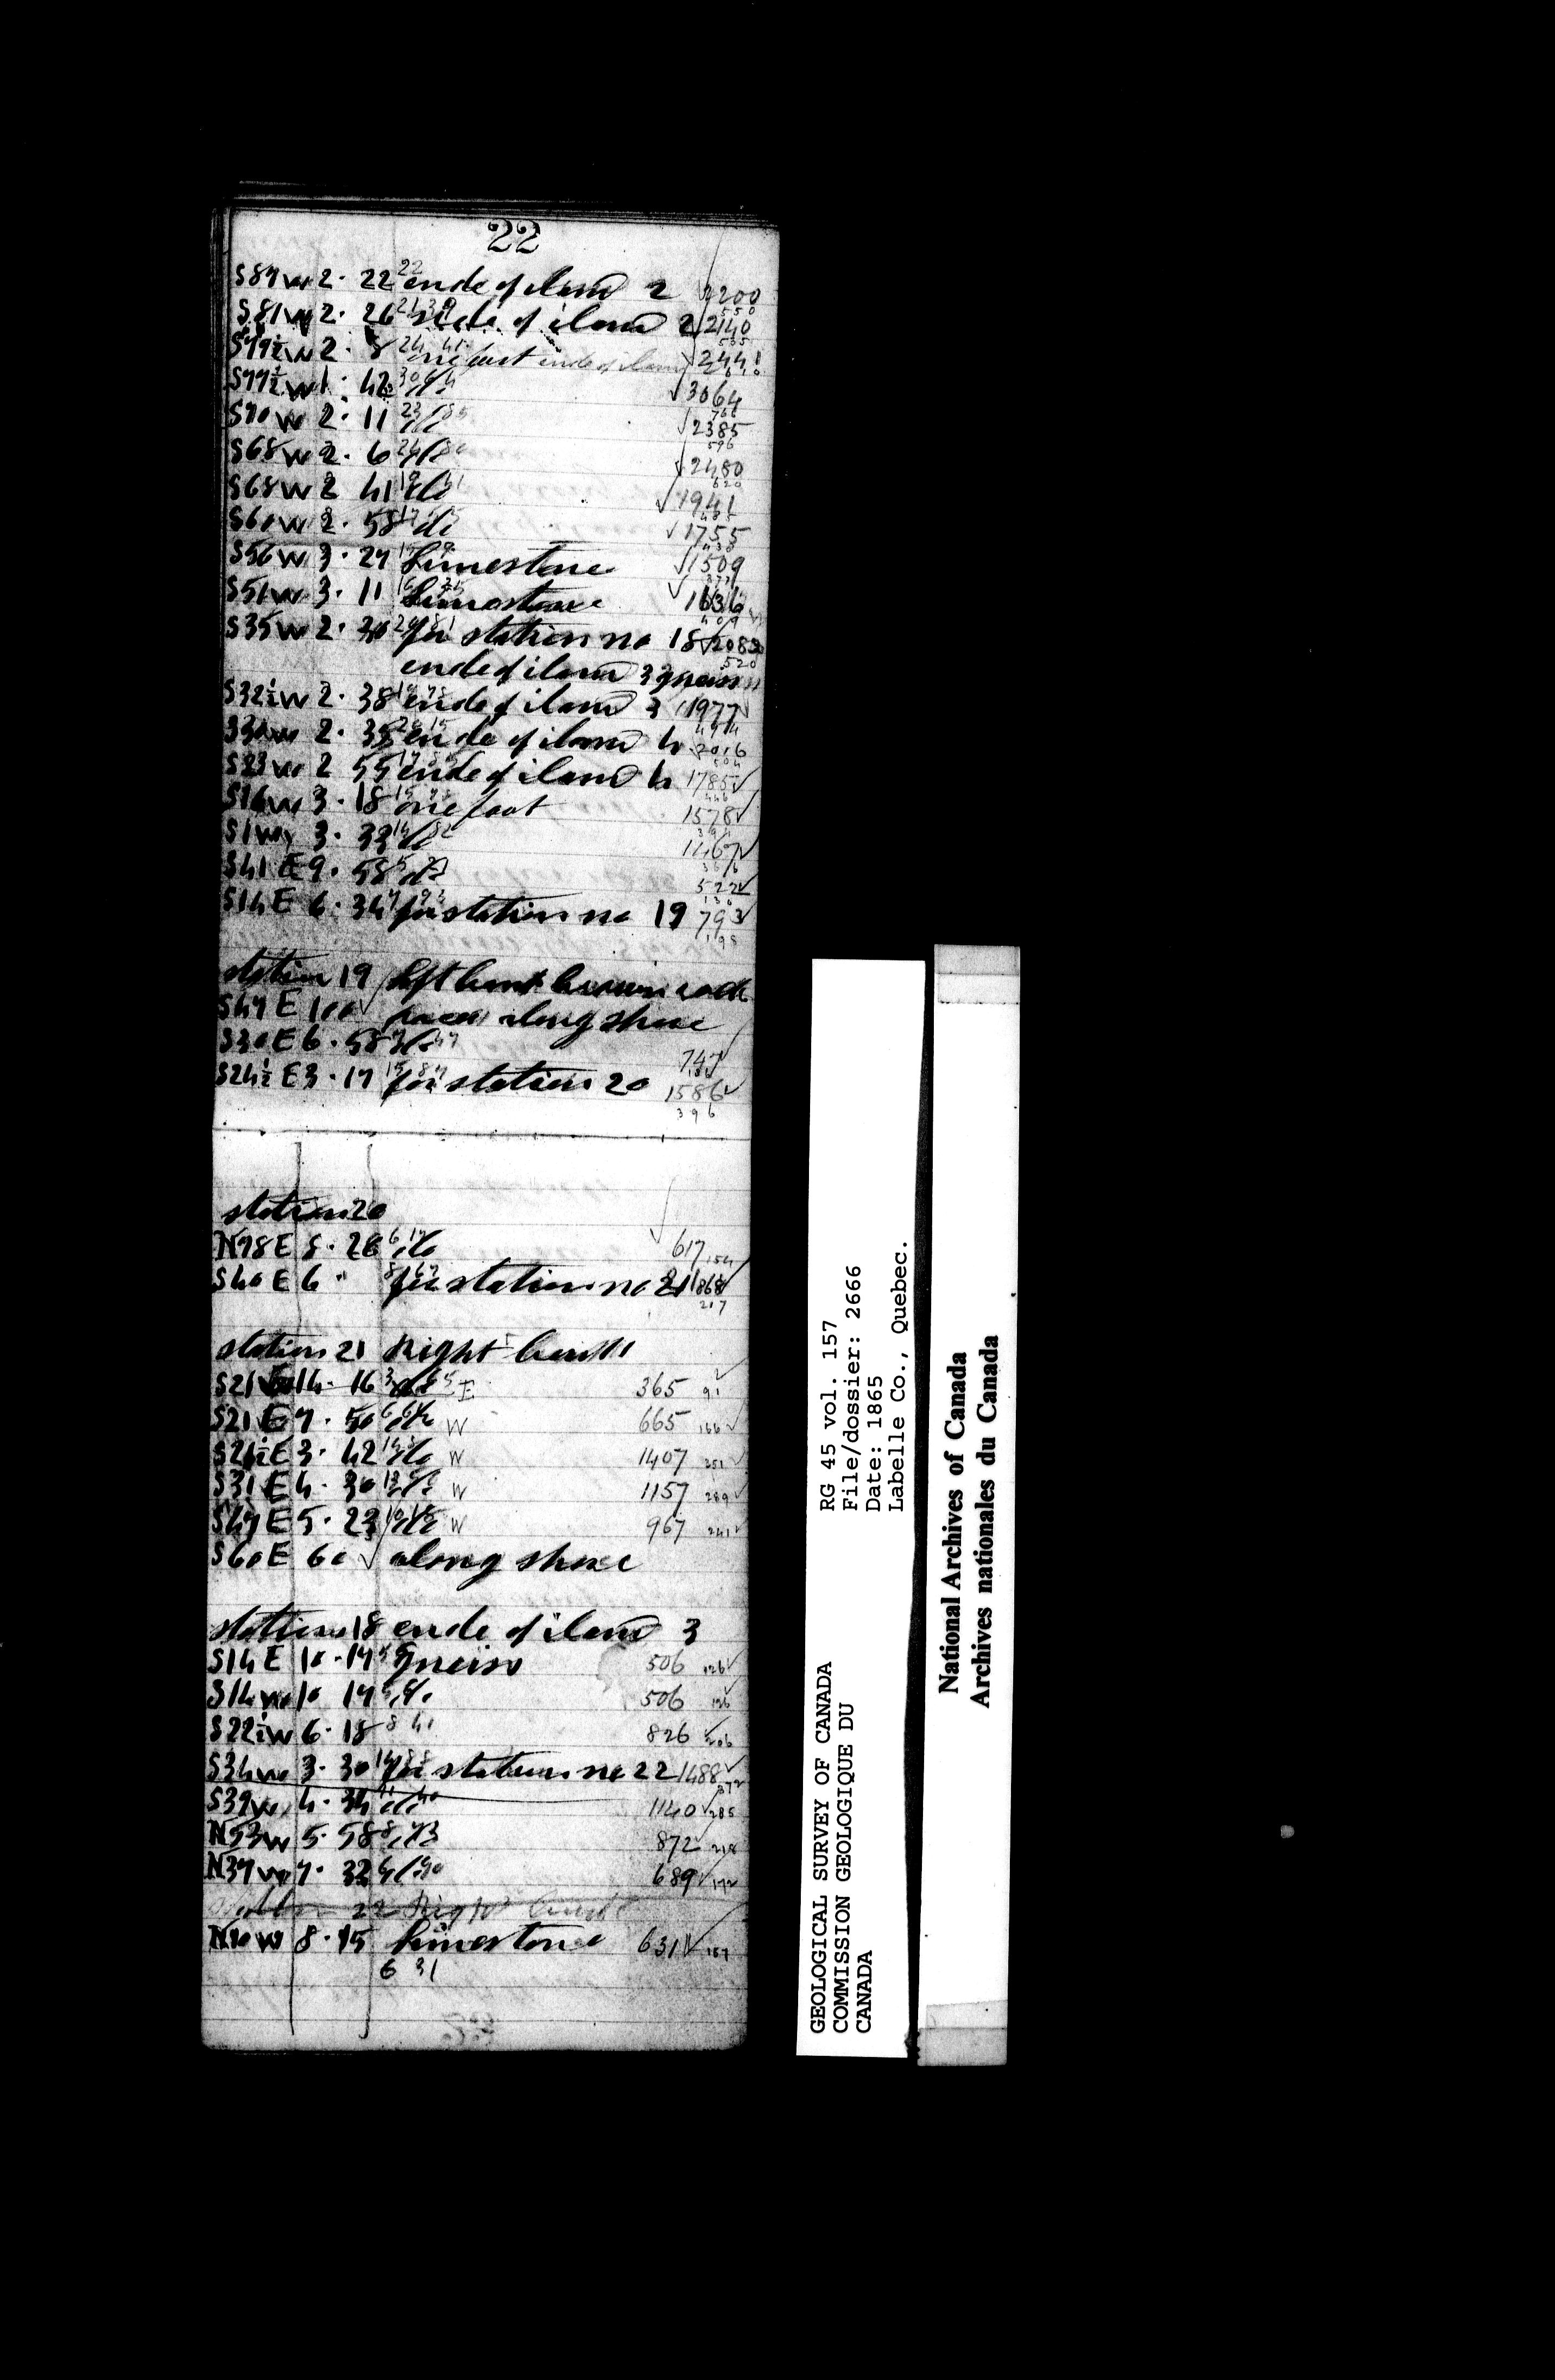 22
S87W 2. 22 ende of iland 2 2200
550
S81W 2. 26 side of iland 2 2140
535
S79½W 2. 8 one foot ende of iland 2441
610
S77½W 1. 42 do 3064
766
S70W 2. 11 do 2385
596
S68W 2. 6 do 2480
620
S68W 2 41 do 1941
485
S60W 2. 58 do 1755
438
S56W 3. 27 Limestone 1509
377
S51W 3. 11 Limestone 1636
409
S35W 2. 30 for station no 18 2082
520
ende of iland 3 gneiss
S32½W 2. 38 ende of iland 3 1977
494
S30W 2. 35 ende of iland 4 2016
504
S23W 2 55 ende of iland 4 1785
446
S16W 3. 18 one foot 1578
394
S1W 3. 33 do 1467
366
S41E 9. 58 do 522
130
S14E 6. 34 for station no 19 793
198
station 19 left bank
S47E 100 paces along shore
S30E 6. 58 do 747
186
S24½E 3. 17 for station 20 1586
396
station 20
N78E 8. 26 do 617 154
S40E 6 " for station no 21 868
217
station 21 Right bank
S21W 14. 16 do E 365 91
S21E 7. 50 do W 665 166
S26½E 3. 42 do W 1407 351
S31E 4. 30 do W 1157 289
S47E 5. 23 do W 967 241
S60E 60 along shore
station 18 ende of iland 3
S14E 10. 17 gneiss 506 126
S14W 10 17 do 506 126
S22½W 6. 18 826 206
S34W 3. 30 for station no 22 1488
372
S39W 4. 34 do 1140 285
N53W 5. 58 872 218
N37W 7. 32 do 689 172
station 22 Right bank
N70W 8. 15 Limestone 631 157
6 31
GEOLOGICAL SURVEY OF CANADA
COMMISSION GEOLOGIQUE DU
CANADA
RG 45 vol. 157
File/dossier: 2666
Date: 1865
Labelle Co., Quebec.
National Archives of Canada
Archives nationales du Canada